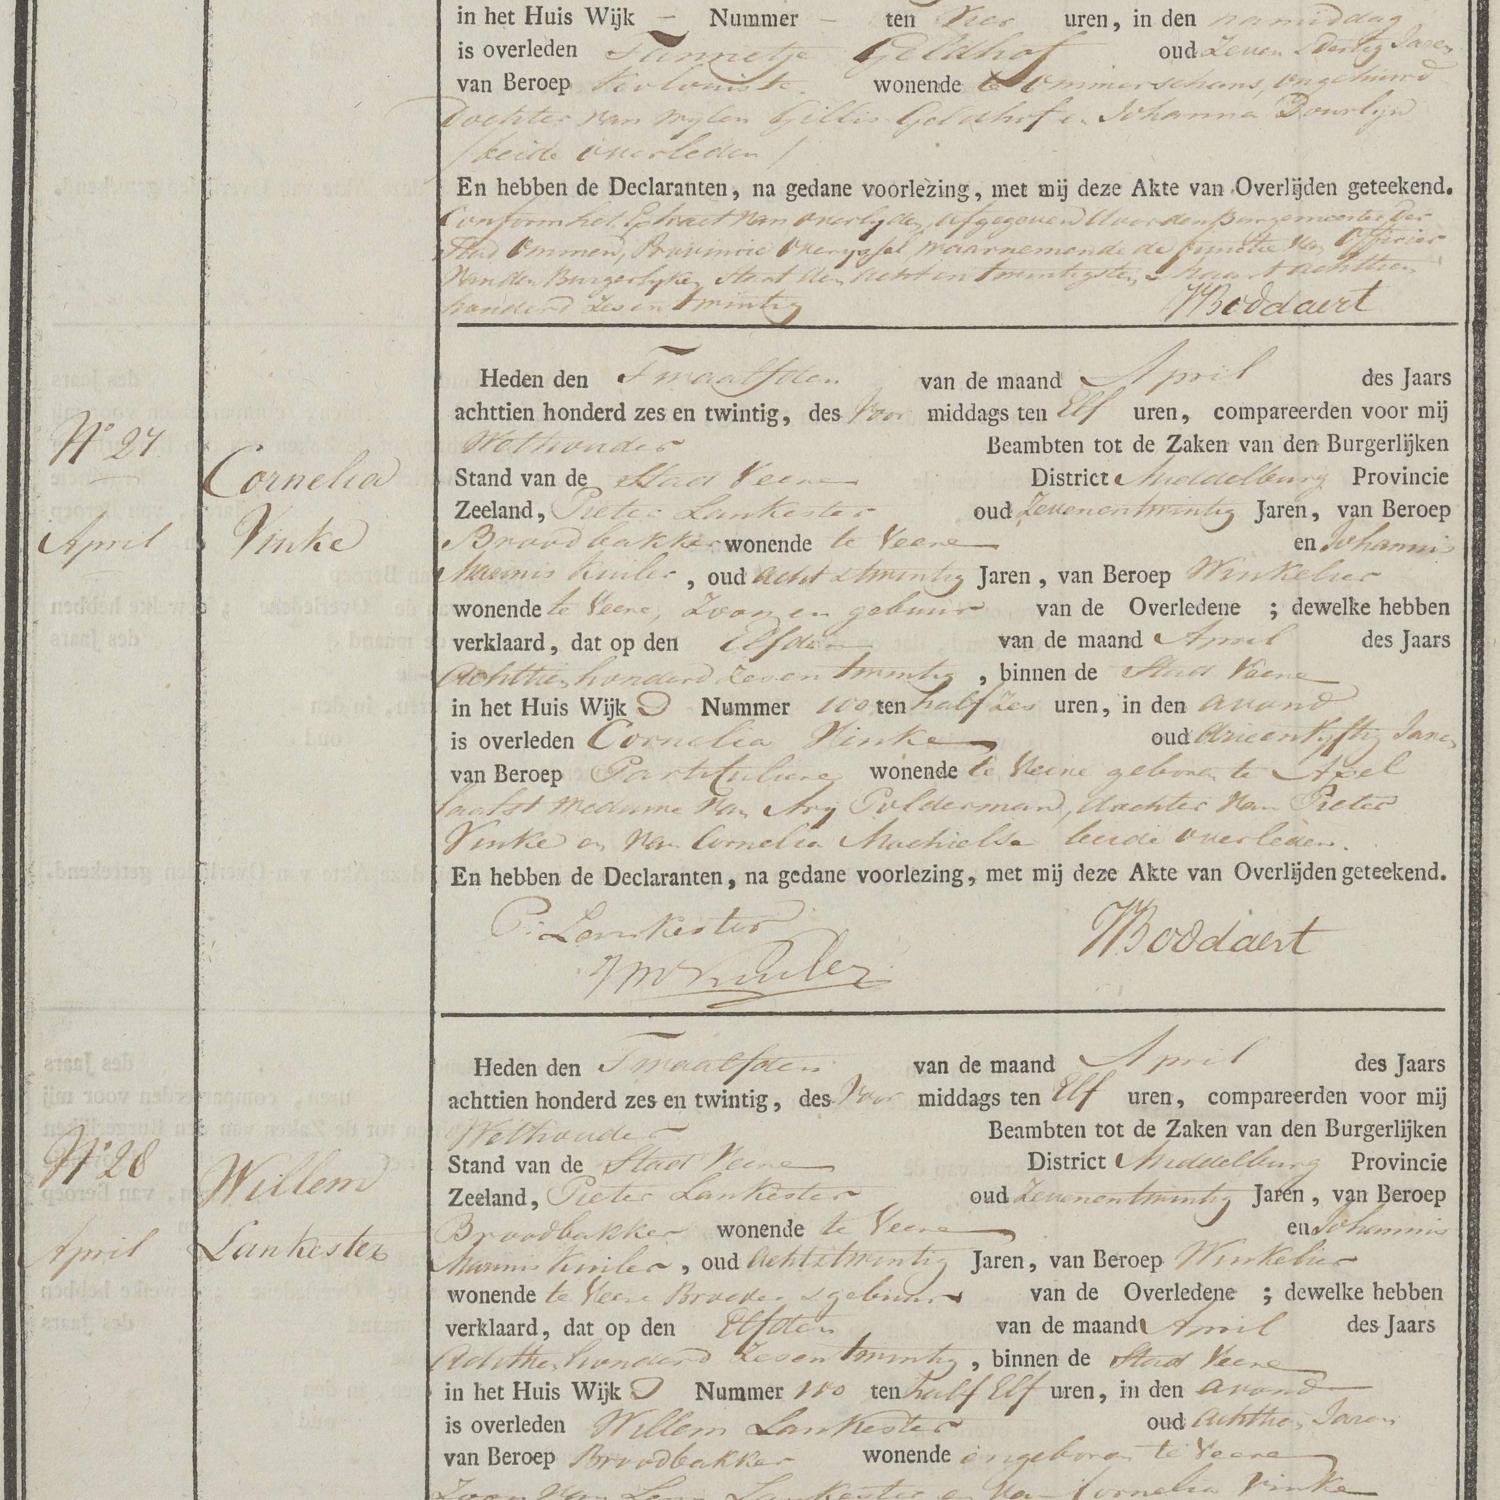 in het Huis Wijk – Nummer – ten Vier uren, in den namiddag
is overleden Tannetje Geldhof oud Zeven & dertig Jaren
van Beroep Koloniste wonende te Ommerschans, ongehuwd
Dochter van wylen Gillis Geldhof en Johanna Dourlyn
/ beide overleden /
En hebben de Declaranten, na gedane voorlezing, met mij deze Akte van Overlijden geteekend.
Conform het Extract van overlyden, afgegeven door den Burgemeester der
Stad Ommen, Provincie Overyssel, waarnemende de functie van Officier
van den Burgerlyken Staat den acht en twintigsten Maart achttien
honderd zes en twintig WBoddaert
Heden den Twaalfden van de maand April des Jaars
achttien honderd zes en twintig, des Voor middags ten Elf uren, compareerden voor mij
Wethouder Beambten tot de Zaken van den Burgerlijken
Stand van de Stad Veere District Middelburg Provincie
Zeeland, Pieter Lankester oud Zevenentwintig Jaren, van Beroep
Broodbakker wonende te Veere en Johannis
Marinis Kuiler, oud acht & twintig Jaren, van Beroep Winkelier
wonende te Veere, Zoon en gebuur van de Overledene ; dewelke hebben
verklaard, dat op den Elfden van de maand April des Jaars
Achttien honderd Zes en twintig, binnen de Stad Veere
in het Huis Wijk D Nummer 100 ten half Zes uren, in den avond
is overleden Cornelia Vinke oud drieenvyftig Jaren
van Beroep Particuliere wonende te Veere geboren te Axel
laatst weduwe van Ary Polderman, dochter van Pieter
Vinke en van Cornelia Machielse beide overleden.
En hebben de Declaranten, na gedane voorlezing, met mij deze Akte van Overlijden geteekend.
P. Lankester WBoddaert
JMKuiler
No 27 Cornelia
April Vinke
Heden den Twaalfden van de maand April des Jaars
achttien honderd zes en twintig, des Voor middags ten Elf uren, compareerden voor mij
Wethouder Beambten tot de Zaken van den Burgerlijken
Stand van de Stad Veere District Middelburg Provincie
Zeeland, Pieter Lankester oud Zevenentwintig Jaren, van Beroep
Broodbakker wonende te Veere en Johannis
Marinis Kuiler, oud acht & twintig Jaren, van Beroep Winkelier
wonende te Veere Broeder & gebuur van de Overledene ; dewelke hebben
verklaard, dat op den Elfden van de maand April des Jaars
Achttien honderd Zes en twintig, binnen de Stad Veere
in het Huis Wijk D Nummer 100 ten half Elf uren, in den avond
is overleden Willem Lankester oud achttien Jaren
van Beroep Broodbakker wonende en geboren te Veere
Zoon van Lankester en van Cornelia Vinke
No 28 Willem
April Lankester